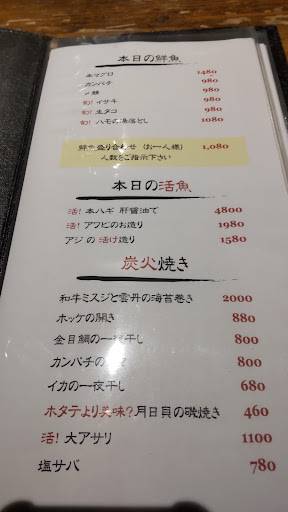 本日の鮮魚
本マグロ 1480
カンパチ 980
〆鯖 980
旬! イサキ 980
旬! 生タコ 980
旬! ハモの湯落とし 1080
鮮魚盛り合わせ (お一人様) 1,080
人数をご指示下さい
本日の活魚
活! 本ハギ 肝醤油で 4800
活! アワビのお造り 1980
アジ の 活け造り 1580
炭火焼き
和牛ミスジと雲丹の海苔巻き 2000
ホッケの開き 880
金目鯛の一夜干し 800
カンパチの 800
イカの一夜干し 680
ホタテより美味?月日貝の磯焼き 460
活! 大アサリ 1100
塩サバ 780